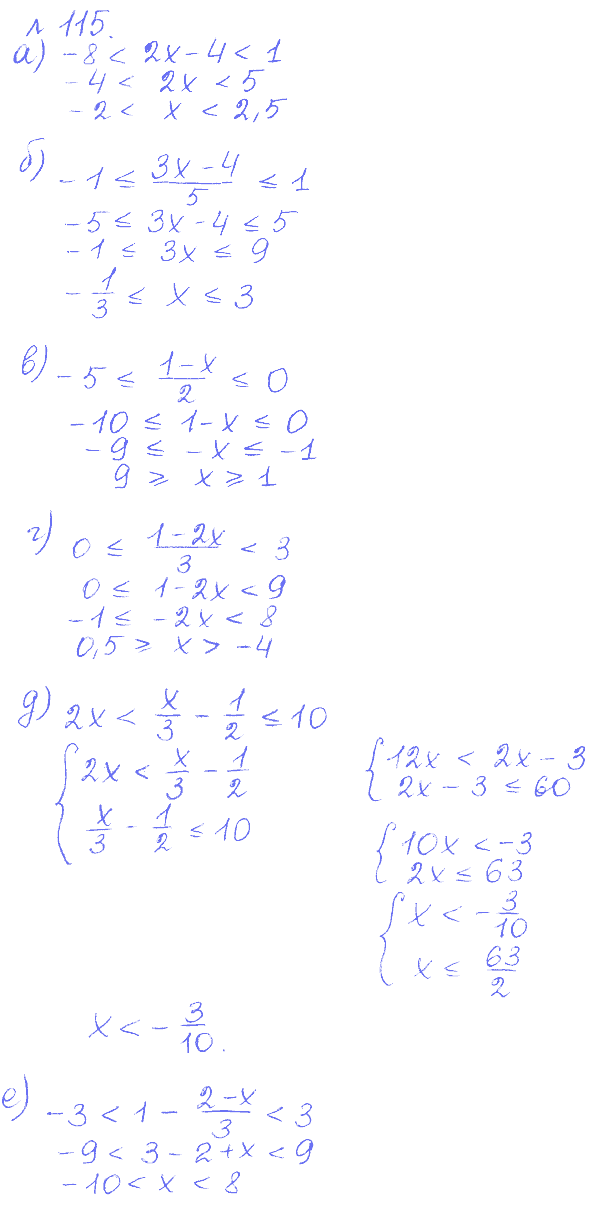 л 115.
а) -8 < 2x - 4 < 1
-4 < 2x < 5
-2 < x < 2,5
б) -1 ≤ (3x - 4)/5 ≤ 1
-5 ≤ 3x - 4 ≤ 5
-1 ≤ 3x ≤ 9
-1/3 ≤ x ≤ 3
в) -5 ≤ (1 - x)/2 ≤ 0
-10 ≤ 1 - x ≤ 0
-9 ≤ -x ≤ -1
9 ≥ x ≥ 1
г) 0 ≤ (1 - 2x)/3 < 3
0 ≤ 1 - 2x < 9
-1 ≤ -2x < 8
0,5 ≥ x > -4
д) 2x < x/3 - 1/2 ≤ 10
{ 2x < x/3 - 1/2
x/3 - 1/2 ≤ 10
{ 12x < 2x - 3
2x - 3 ≤ 60
{ 10x < -3
2x ≤ 63
{ x < -3/10
x ≤ 63/2
x < -3/10.
е) -3 < 1 - (2 - x)/3 < 3
-9 < 3 - 2 + x < 9
-10 < x < 8